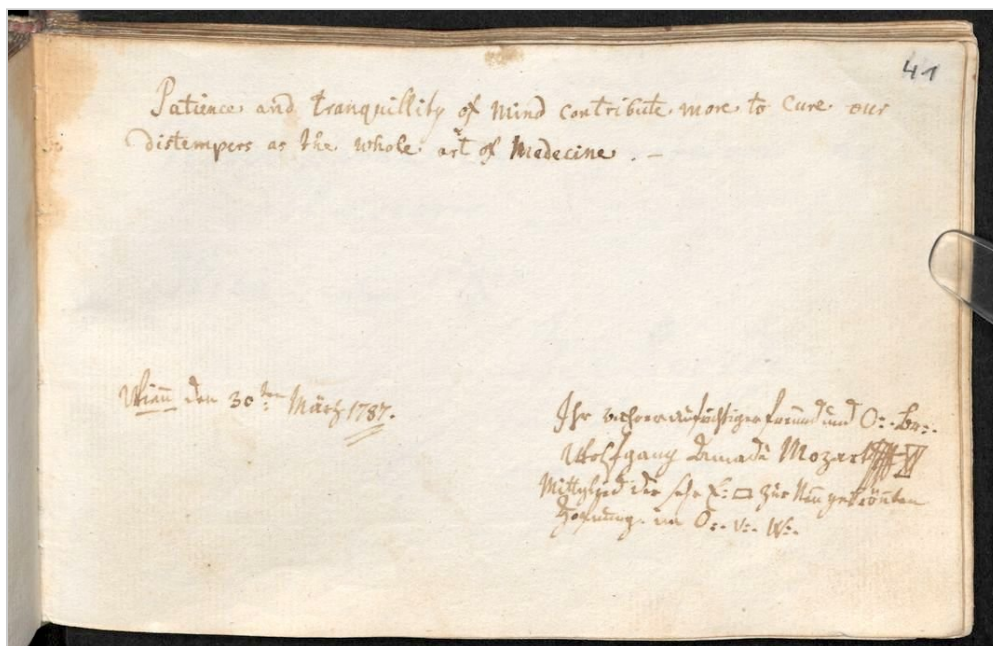 41
Patience and tranquillity of mind contribute more to cure our
distempers as the whole art of Medecine. –
Wien den 30ten März 1787.
Ihr wahrer aufrichtiger Freund und O:. Br:.
Wolfgang Amadè Mozart
Mittglied der sehr E: □ zur Neugekrönten
Hofnung im O:. v:. W:.